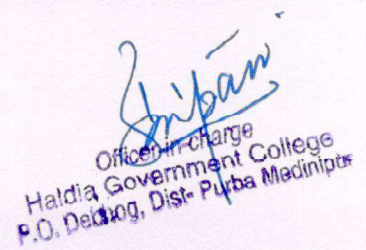 Officer-in-charge
Haldia Government College
P.O. Debhog, Dist- Purba Medinipur